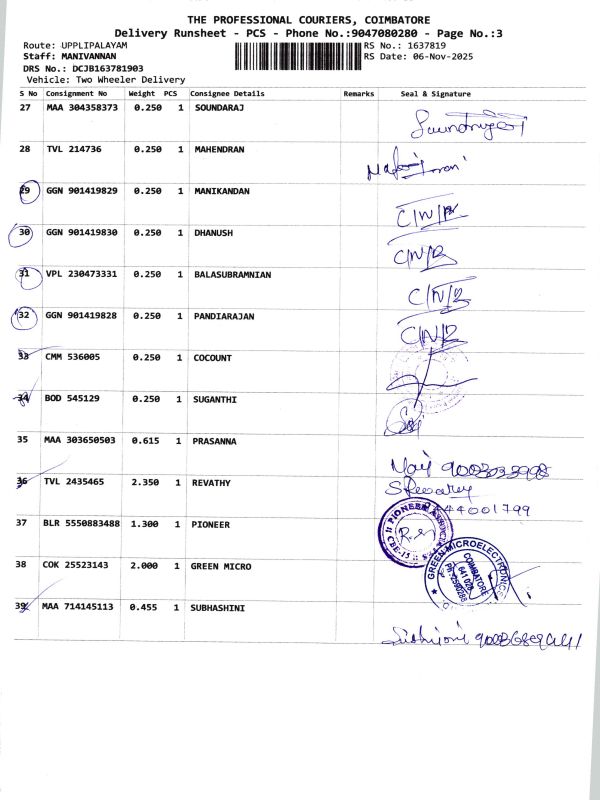 THE PROFESSIONAL COURIERS, COIMBATORE
Delivery Runsheet - PCS - Phone No.:9047080280 - Page No.:3
Route: UPPLIPALAYAM RS No.: 1637819
Staff: MANIVANNAN RS Date: 06-Nov-2025
DRS No.: DCJB163781903
Vehicle: Two Wheeler Delivery
S No Consignment No Weight PCS Consignee Details Remarks Seal & Signature
27 MAA 304358373 0.250 1 SOUNDARAJ
28 TVL 214736 0.250 1 MAHENDRAN
29 GGN 901419829 0.250 1 MANIKANDAN C/N/R
30 GGN 901419830 0.250 1 DHANUSH C/N/R
31 VPL 230473331 0.250 1 BALASUBRAMNIAN C/N/R
32 GGN 901419828 0.250 1 PANDIARAJAN C/N/R
33 CMM 536005 0.250 1 COCOUNT
34 BOD 545129 0.250 1 SUGANTHI
35 MAA 303650503 0.615 1 PRASANNA
36 TVL 2435465 2.350 1 REVATHY
37 BLR 5550883488 1.300 1 PIONEER
PIONEER
CBE-15
38 COK 25523143 2.000 1 GREEN MICRO
GREEN MICROELECTRONICS
COIMBATORE
641 028
39 MAA 714145113 0.455 1 SUBHASHINI